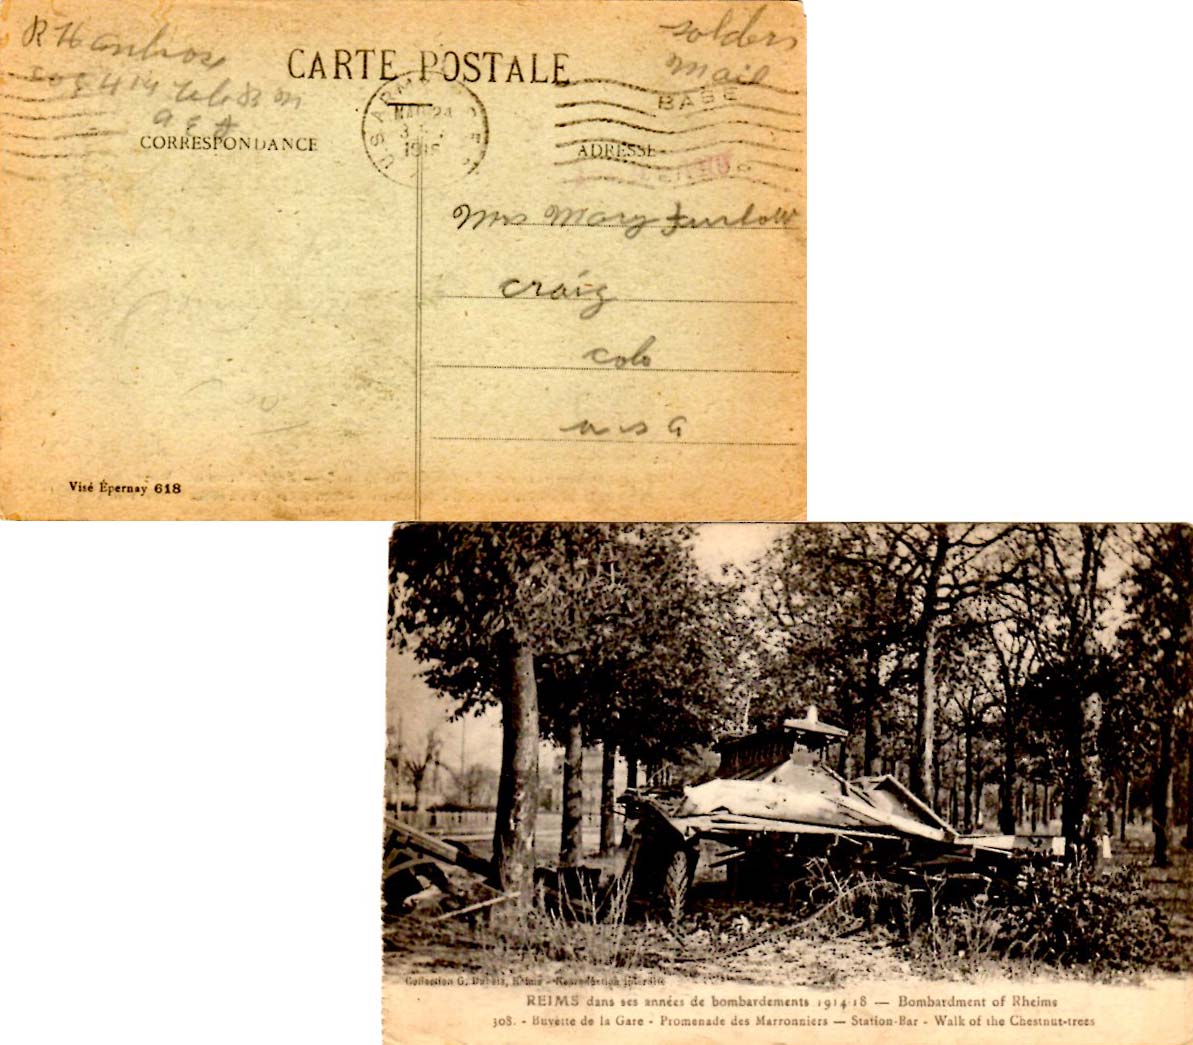 R H
solders
mail
CARTE POSTALE
A E F
U.S. ARMY
MAR 24
BASE
CORRESPONDANCE
ADRESSE
Mrs Mary Furlow
craig
colo
u s a
Visé Épernay 618
Collection G. Dubois, Reims - Reproduction interdite
REIMS dans ses années de bombardements 1914-18 — Bombardment of Rheims
308. - Buvette de la Gare - Promenade des Marronniers — Station-Bar - Walk of the Chestnut-trees